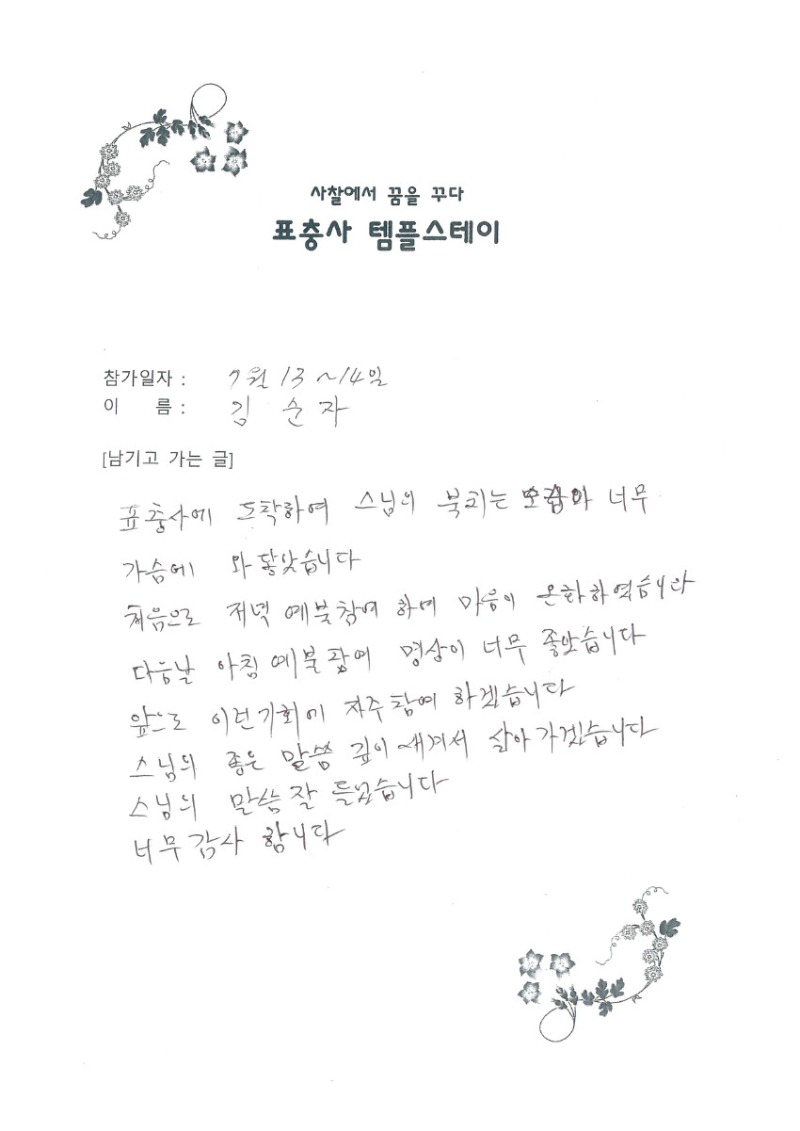 사찰에서 꿈을 꾸다
표충사 템플스테이
참가일자 : 7월 13 ~14일
이 름 : 김 순 자
[남기고 가는 글]
표충사에 도착하여 스님의 북치는 너무
가슴에 와 닿았습니다
처음으로 저녁 예불참여 하며 마음이 온화하였습니다
다음날 아침 예불 명상이 너무 좋았습니다
앞으로 이런기회에 자주 참여 하겠습니다
스님의 좋은 말씀 깊이 새겨서 살아 가겠습니다
스님의 말씀 잘 들었습니다
너무 감사 합니다